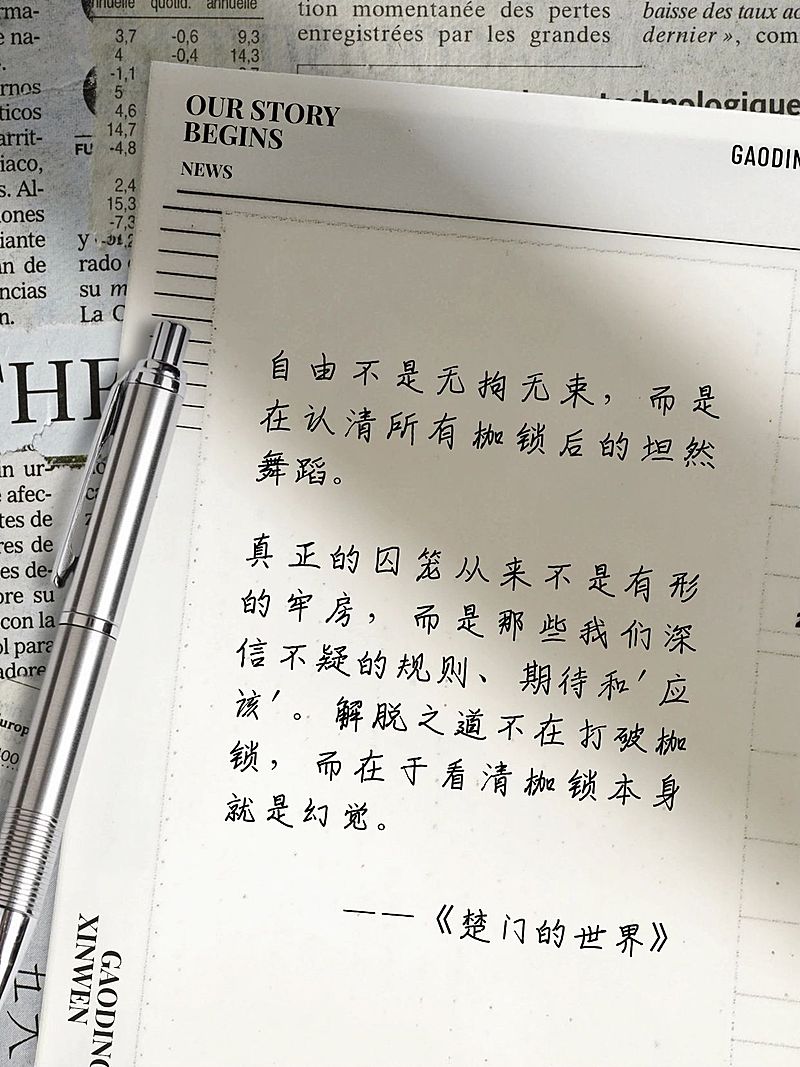 nnuelle quotid. annuelle
3,7 -0,6 9,3
4 -0,4 14,3
-1,1
5
4,6
14,7
-4,8
2,4
15,3
-7,3
tion momentanée des pertes
enregistrées par les grandes
baisse des taux ac
dernier», com
technologique
OUR STORY
BEGINS
NEWS
GAODIN
THE
自由不是无拘无束，而是
在认清所有枷锁后的坦然
舞蹈。
真正的囚笼从来不是有形
的牢房，而是那些我们深
信不疑的规则、期待和'应
该'。解脱之道不在打破枷
锁，而在于看清枷锁本身
就是幻觉。
——《楚门的世界》
rma-
e na-
rnos
ticos
arrit-
iaco,
s. Al-
iones
iante
an de
ncias
n.
y
rado
su m
La C
an ur-
e afec-
tes de
res de
es de-
bre su
con la
ol para
adore
GAODING
XINWEN